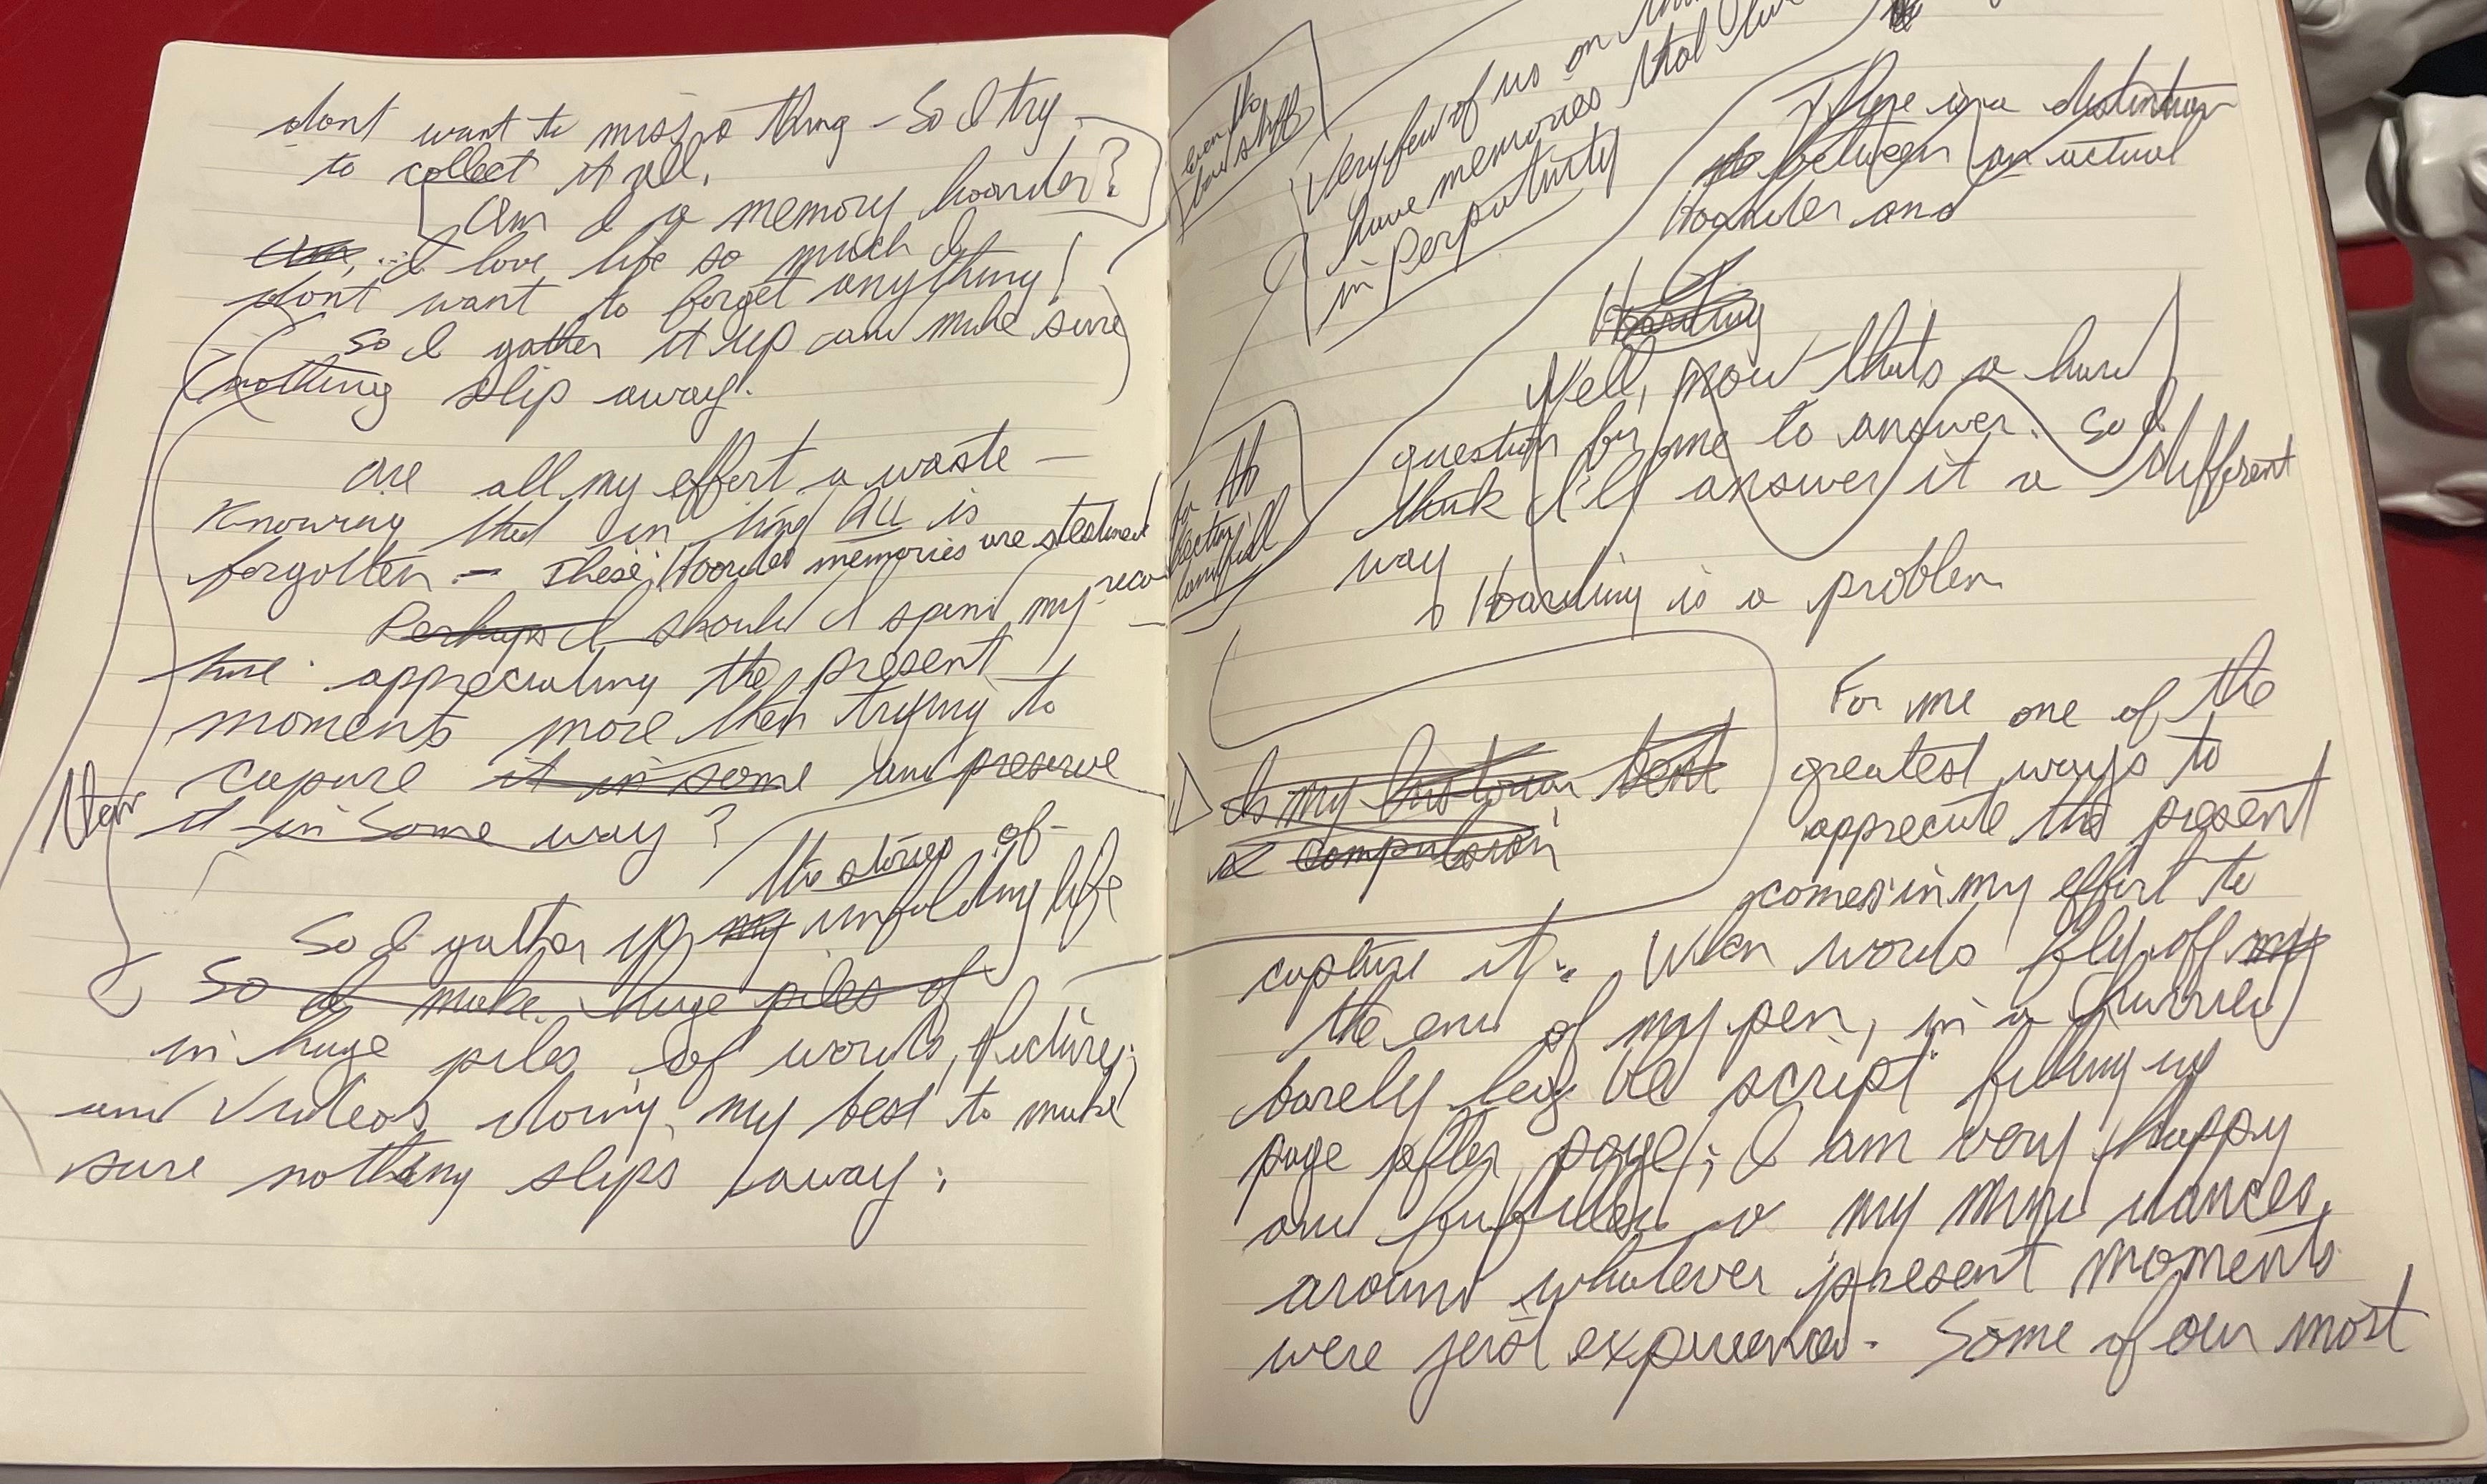 dont want to miss a thing - So I try
to collect it all.
Am I a memory hoarder?
I love life so much I
dont want to forget anything!
so I gather it up and make sure
nothing slip away.
are all my effort a waste -
Knowing that in time All is
forgotten - These Hoarded memories are
Perhaps I should I spend my
time appreciating the present
moments more then trying to
capure it in some and preserve
it in some way?
the stories of
So I gather up my unfolding life
So I make huge piles of
in huge piles of words, pictures,
and videos doing my best to make
sure nothing slips away.
even the
bad stuff
Very few of us on
have memories that live
in Perpatuity
for the
landfill
There is a distinction
between an actual
Hoarder and
Hoarding
Well, now thats a hard
question for me to answer. So I
think I'll answer it a different
way
Hoarding is a problem
Is my historian bent
a compulsion
For me one of the
greatest ways to
appreciate the present
comes in my effort to
capture it. When words fly off my
the end of my pen, in a hurried
barely legible script filling up
page after page; I am very happy
and fulfilled as my mind dances
around whatever present moments
were just experienced. Some of our most